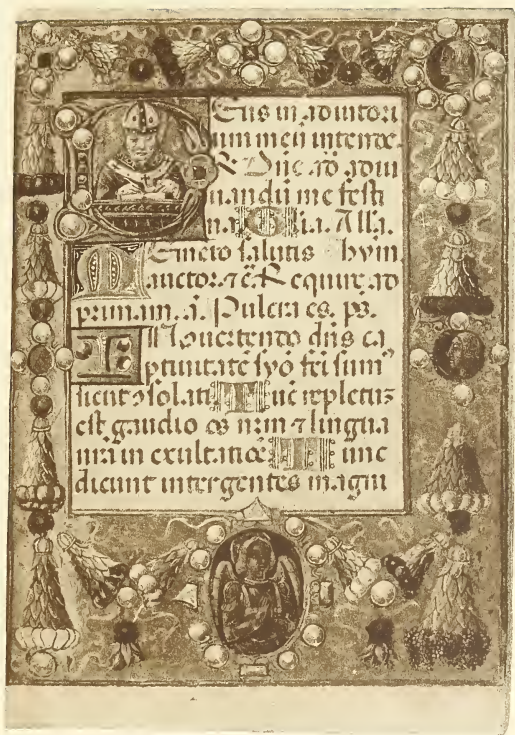 Deus in adiutori
um meū intende.
℟. Dñe ad adiu
uandū me festi
na. Glīa. Allā.
Memēto salutis hym
auctor. ⁊ c̄. Require ad
primam. ā. Pulcra es. ps.
In ꝯuertendo dñs ca
ptiuitatē syō fci sumꝰ
sicut ꝯsolati Tūc repletuꝫ
est gaudio os nr̄m ⁊ lingua
nr̄a in exultatiōe Tunc
dicunt inter gentes magni